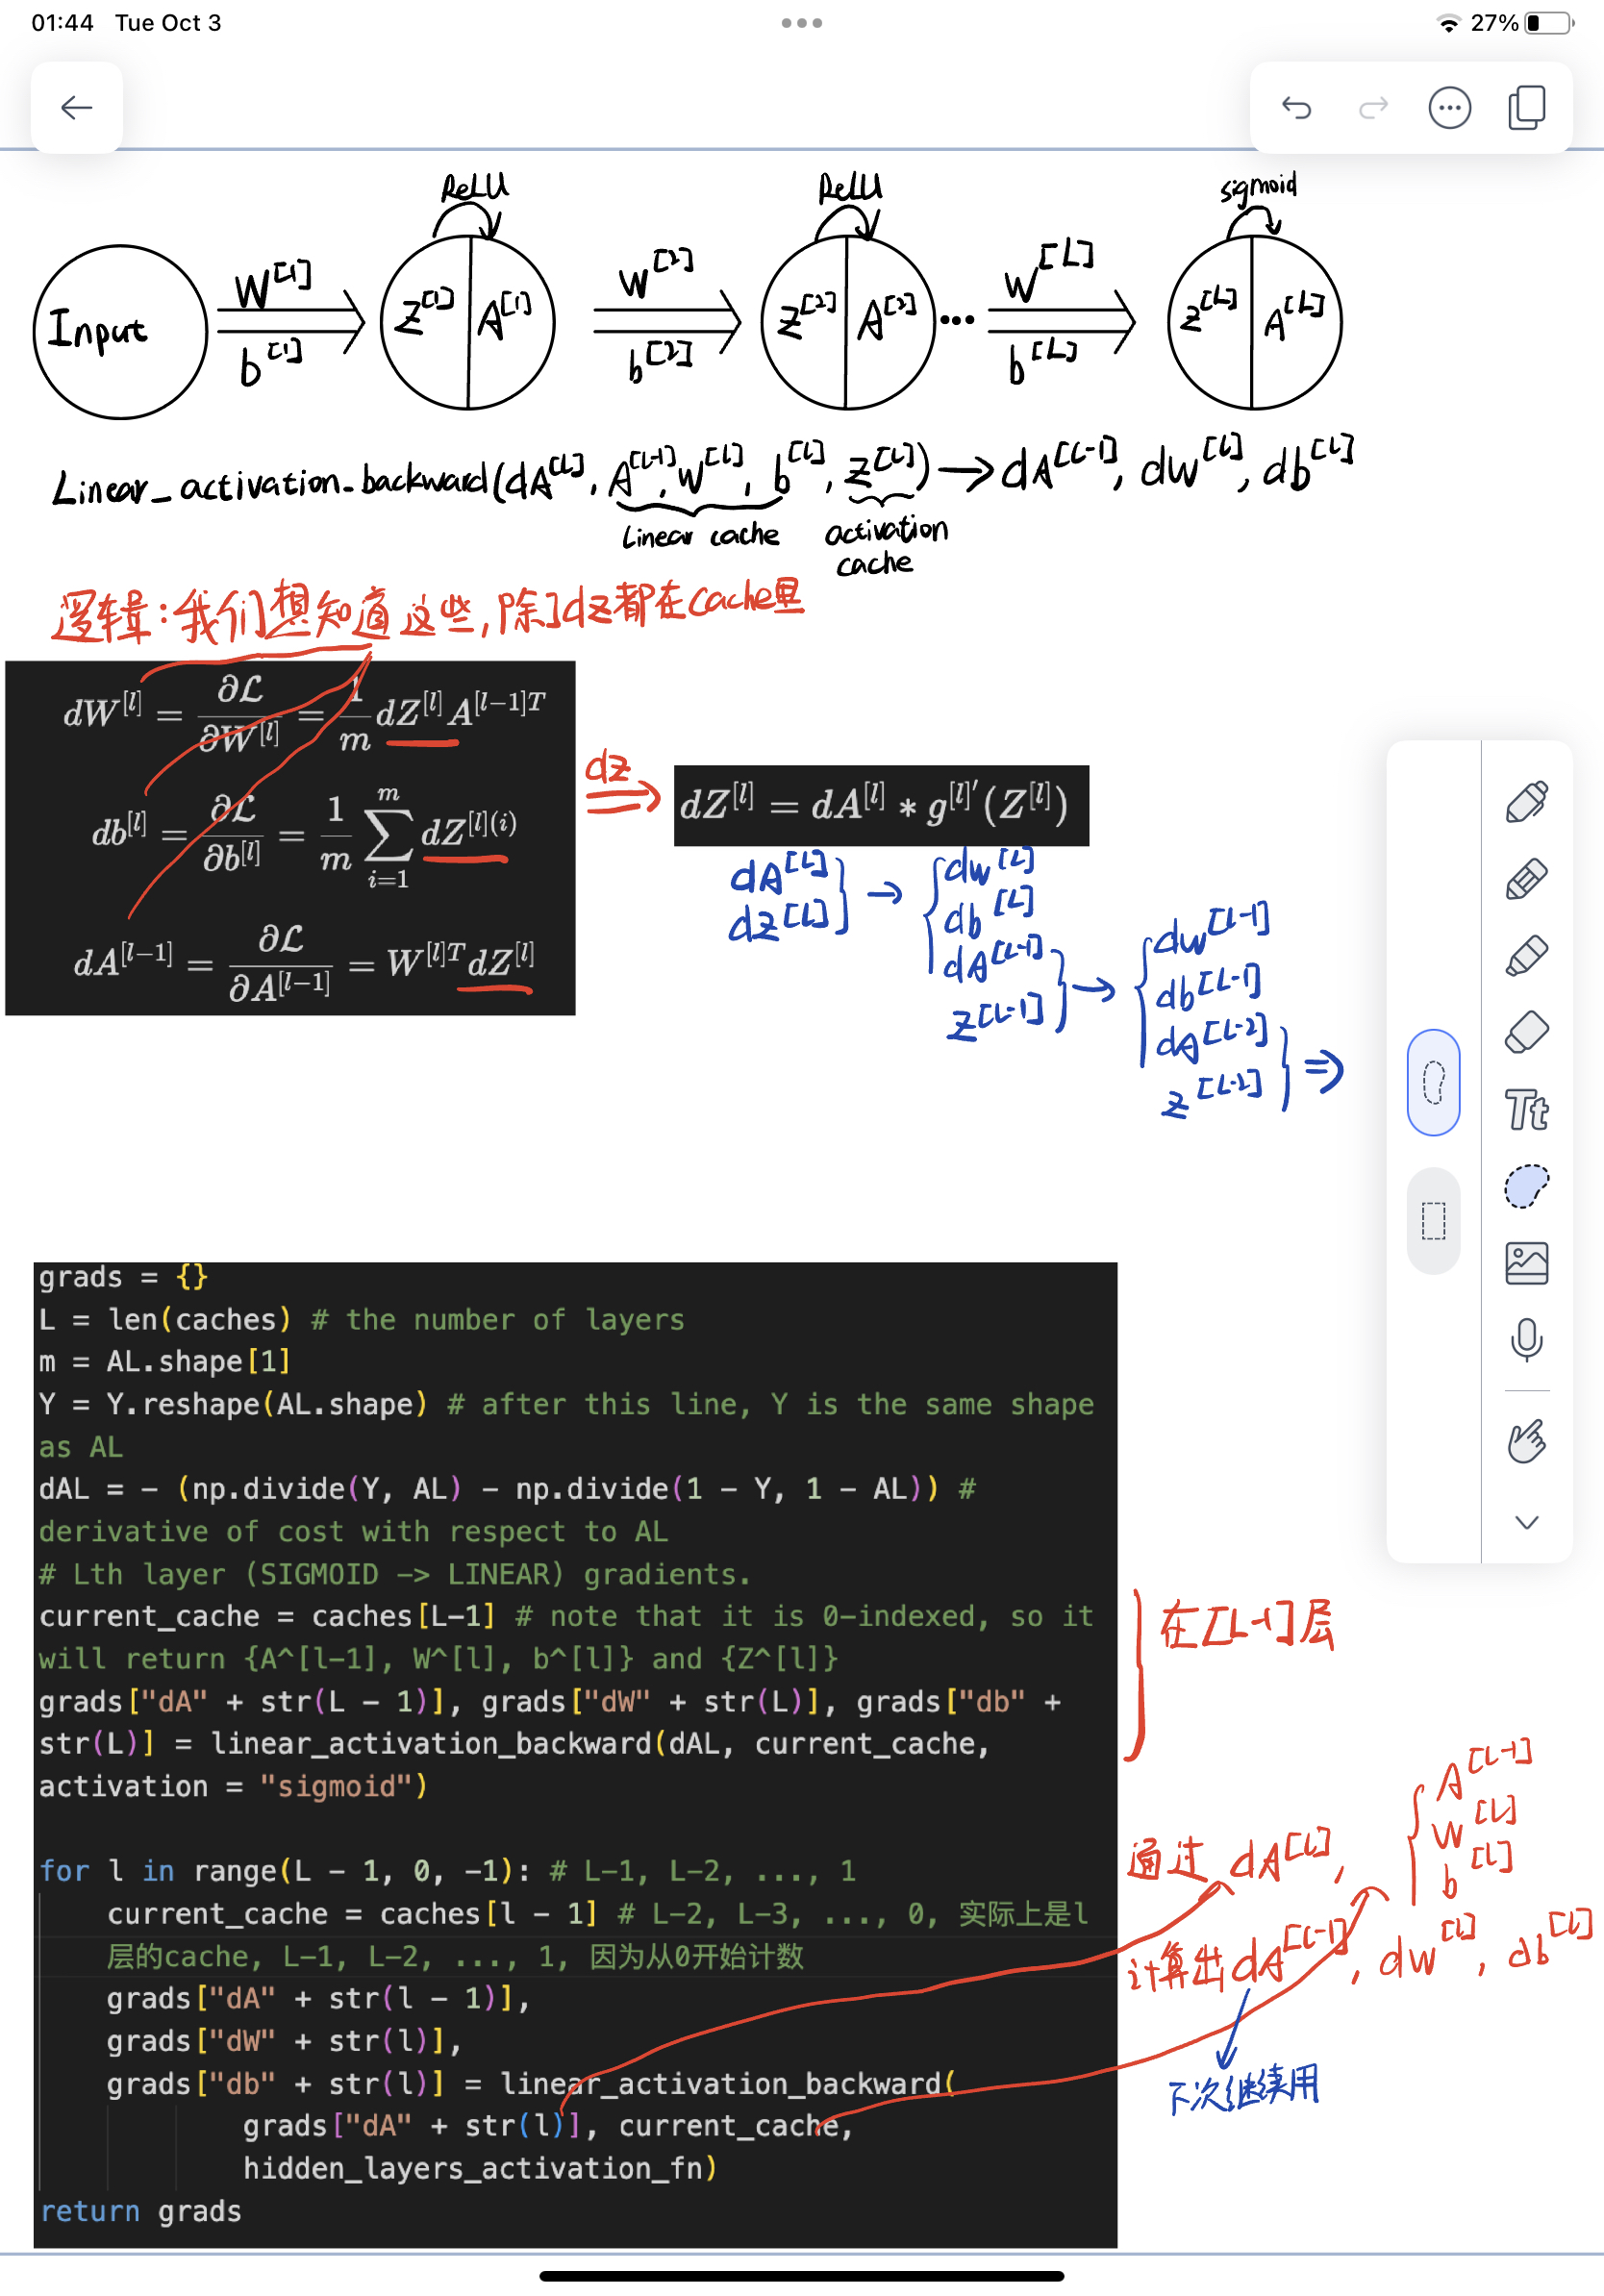 01:44 Tue Oct 3
27%
ReLU
ReLU
sigmoid
Input
W[1]
b[1]
Z[1] A[1]
W[2]
b[2]
Z[2] A[2]
...
W[L]
b[L]
Z[L] A[L]
Linear_activation_backward(dA[L], A[L-1], W[L], b[L], Z[L]) → dA[L-1], dW[L], db[L]
Linear cache
activation cache
逻辑:我们想知道这些,除了dz都在cache里
dW^{[l]} = ∂ℒ/∂W^{[l]} = 1/m dZ^{[l]} A^{[l-1]T}
db^{[l]} = ∂ℒ/∂b^{[l]} = 1/m ∑_{i=1}^{m} dZ^{[l](i)}
dA^{[l-1]} = ∂ℒ/∂A^{[l-1]} = W^{[l]T} dZ^{[l]}
dz
dZ^{[l]} = dA^{[l]} * g^{[l]'}(Z^{[l]})
dA[L]
dZ[L]
→
dW[L]
db[L]
dA[L-1]
Z[L-1]
→
dW[L-1]
db[L-1]
dA[L-2]
Z[L-2]
⇒
Tt
grads = {}
L = len(caches) # the number of layers
m = AL.shape[1]
Y = Y.reshape(AL.shape) # after this line, Y is the same shape
as AL
dAL = - (np.divide(Y, AL) - np.divide(1 - Y, 1 - AL)) #
derivative of cost with respect to AL
# Lth layer (SIGMOID -> LINEAR) gradients.
current_cache = caches[L-1] # note that it is 0-indexed, so it
will return {A^[l-1], W^[l], b^[l]} and {Z^[l]}
grads["dA" + str(L - 1)], grads["dW" + str(L)], grads["db" +
str(L)] = linear_activation_backward(dAL, current_cache,
activation = "sigmoid")
for l in range(L - 1, 0, -1): # L-1, L-2, ..., 1
current_cache = caches[l - 1] # L-2, L-3, ..., 0, 实际上是l
层的cache, L-1, L-2, ..., 1, 因为从0开始计数
grads["dA" + str(l - 1)],
grads["dW" + str(l)],
grads["db" + str(l)] = linear_activation_backward(
grads["dA" + str(l)], current_cache,
hidden_layers_activation_fn)
return grads
在[L-1]层
通过 dA[L],
A[L-1]
W[L]
b[L]
计算出dA[L-1], dW[L], db[L]
下次继续用